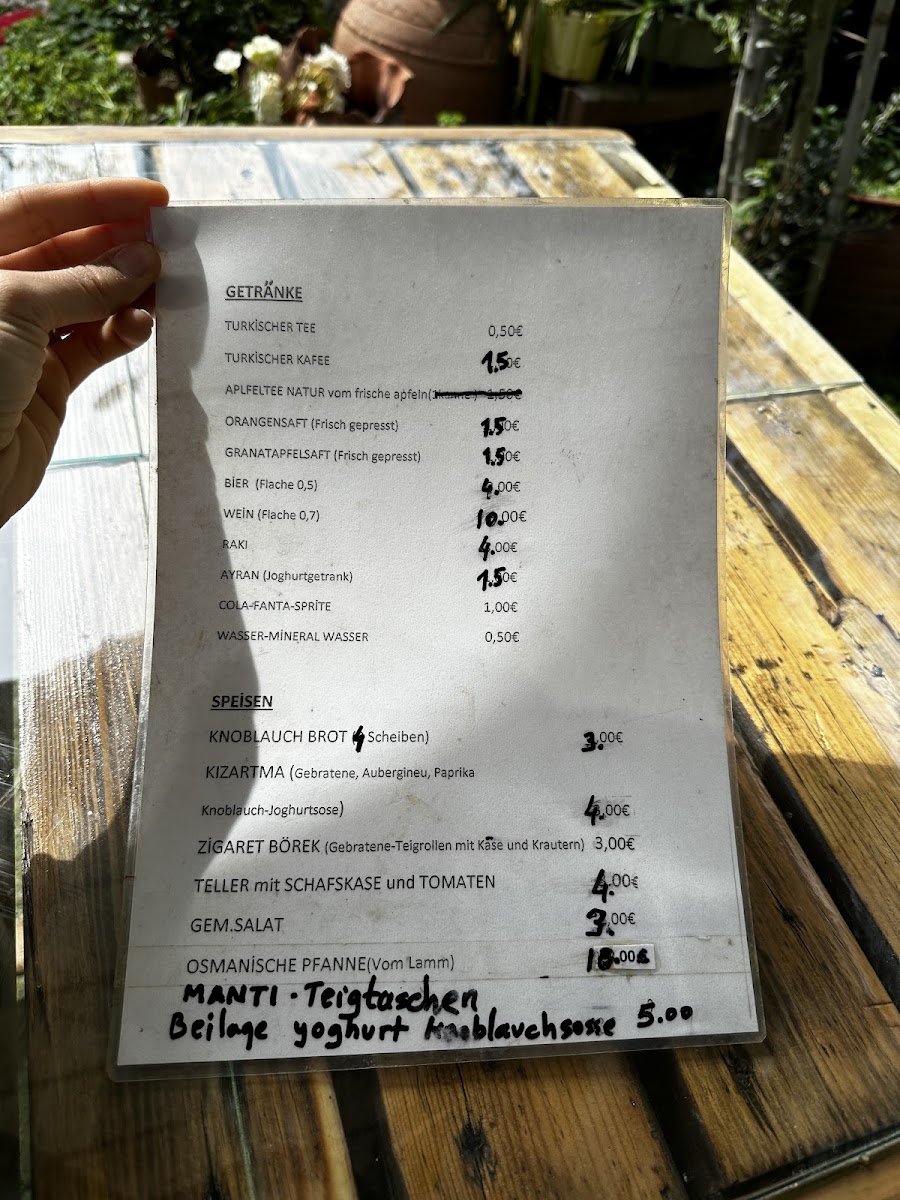 GETRÄNKE
TURKİSCHER TEE 0,50€
TURKİSCHER KAFEE 1.50€
APLFELTEE NATUR vom frische apfeln( 1,50€
ORANGENSAFT (Frisch gepresst) 1.50€
GRANATAPFELSAFT (Frisch gepresst) 1.50€
BİER (Flache 0,5) 4.00€
WEİN (Flache 0,7) 10.00€
RAKI 4.00€
AYRAN (Joghurtgetrank) 1.50€
COLA-FANTA-SPRİTE 1,00€
WASSER-MİNERAL WASSER 0,50€
SPEİSEN
KNOBLAUCH BROT (4 Scheiben) 3.00€
KIZARTMA (Gebratene, Aubergineu, Paprika
Knoblauch-Joghurtsose) 4.00€
ZİGARET BÖREK (Gebratene-Teigrollen mit Käse und Krautern) 3,00€
TELLER mit SCHAFSKASE und TOMATEN 4.00€
GEM.SALAT 3.00€
OSMANİSCHE PFANNE(Vom Lamm) .00€
MANTI · Teigtaschen
Beilage yoghurt Knoblauchsosse 5.00